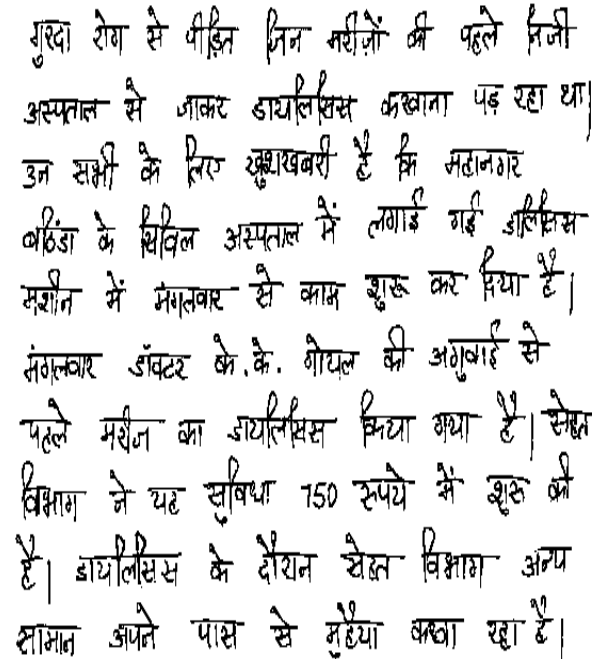 गुरदा रोग से पीड़ित जिन मरीज़ों को पहले निजी
अस्पताल से जाकर डायलिसिस करवाना पड़ रहा था।
उन सभी के लिए खुशखबरी है कि महानगर
बठिंडा के सिविल अस्पताल में लगाई गई डालिसिस
मशीन में मंगलवार से काम शुरू कर दिया है।
मंगलवार डॉक्टर के.के. गोयल की अगुवाई से
पहले मरीज का डायलिसिस किया गया है। सेहत
विभाग ने यह सुविधा 750 रूपये में शुरू की
है। डायलिसिस के दौरान सेहत विभाग अन्य
सामान अपने पास से मुहैया करवा रहा है।